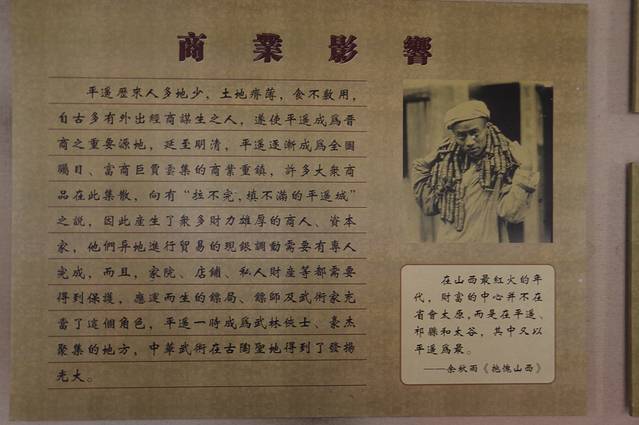 商業影響
平遥歷來人多地少，土地瘠薄，食不敷用，
自古多有外出經商謀生之人，遂使平遥成爲晉
商之重要源地，延至明清，平遥逐漸成爲全國
矚目、富商巨賈雲集的商業重鎮，許多大衆商
品在此集散，向有“拉不完，填不滿的平遥城”
之説，因此産生了衆多財力雄厚的商人、資本
家，他們异地進行貿易的現銀調動需要有專人
完成，而且，家院、店鋪、私人財産等都需要
得到保護，應運而生的鏢局、鏢師及武術家充
當了這個角色，平遥一時成爲武林俠士、豪杰
聚集的地方，中華武術在古陶聖地得到了發揚
光大。
在山西最紅火的年
代，財富的中心并不在
省會太原，而是在平遥、
祁縣和太谷，其中又以
平遥爲最。
——余秋雨《抱愧山西》